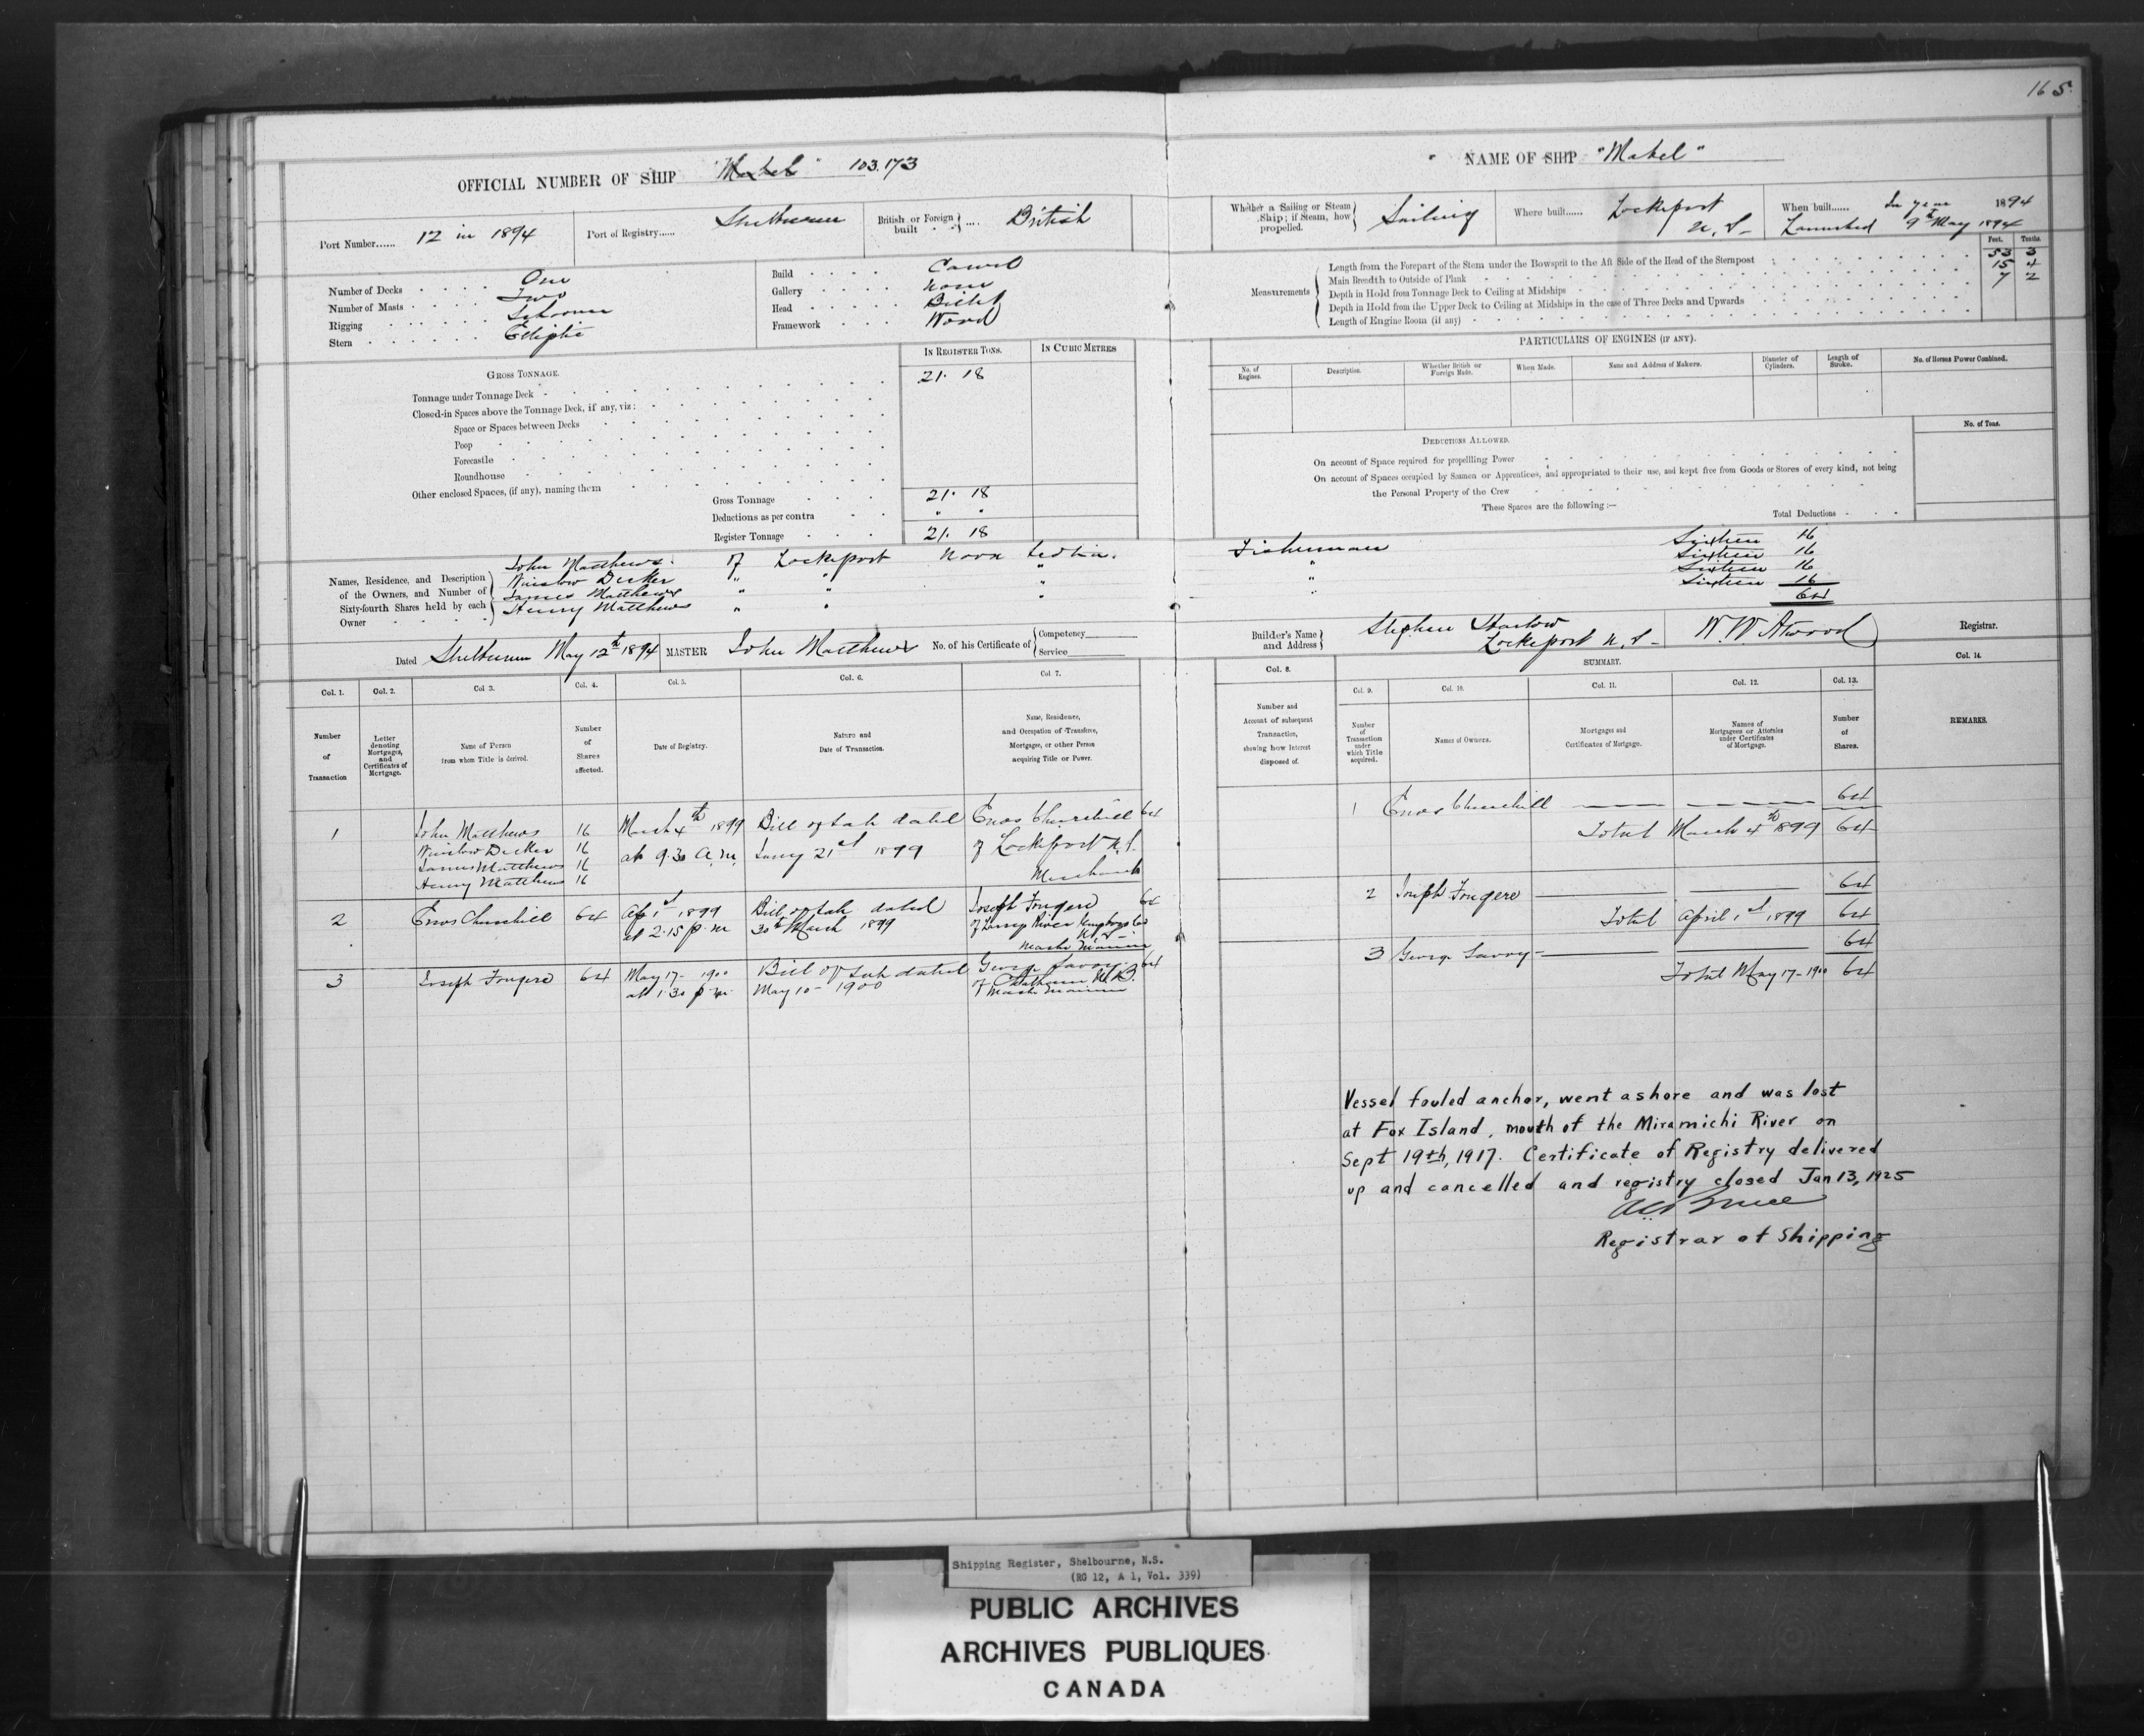 165
OFFICIAL NUMBER OF SHIP "Mabel" 103.173
Port Number...... 12 in 1894
Port of Registry...... Shelburne
British or Foreign built .... British
Number of Decks One
Number of Masts Two
Rigging Schooner
Stern Elliptic
Build Carvel
Gallery None
Head Billet
Framework Wood
IN REGISTER TONS. IN CUBIC METRES
GROSS TONNAGE.
Tonnage under Tonnage Deck 21. 18
Closed-in Spaces above the Tonnage Deck, if any, viz:
Space or Spaces between Decks
Poop
Forecastle
Roundhouse
Other enclosed Spaces, (if any), naming them
Gross Tonnage 21. 18
Deductions as per contra " "
Register Tonnage 21. 18
Names, Residence, and Description of the Owners, and Number of Sixty-fourth Shares held by each Owner
John Matthews of Lockeport Nova Scotia.
Winslow Decker " " "
James Matthews " " "
Henry Matthews " "
Dated Shelburne May 12th 1894 MASTER John Matthews No. of his Certificate of Competency Service
Col. 1. Col. 2. Col 3. Col. 4. Col. 5. Col. 6. Col 7.
Number of Transaction
Letter denoting Mortgages, and Certificates of Mortgage.
Name of Person from whom Title is derived.
Number of Shares affected.
Date of Registry.
Nature and Date of Transaction.
Name, Residence, and Occupation of Transferee, Mortgagee, or other Person acquiring Title or Power.
1 John Matthews 16 March 4th 1899 Bill of Sale dated Enos Churchill 64
Winslow Decker 16 at 9.30 a.m. Jany 21st 1899 of Lockeport N.S.
James Matthews 16 Merchant
Henry Matthews 16
2 Enos Churchill 64 Apl 1st 1899 Bill of Sale dated Joseph Fougere 64
at 2.15 p.m 30th March 1899 of River Co
N.S.
Master Mariner
3 Joseph Fougere 64 May 17 - 1900 Bill of Sale dated George Savoy 64
at 1.30 p.m. May 10 - 1900 of Chatham N.B.
Master Mariner
NAME OF SHIP "Mabel"
Whether a Sailing or Steam Ship; if Steam, how propelled. Sailing
Where built...... Lockeport N.S.
When built...... In year 1894
Launched 9th May 1894
Feet. Tenths.
Measurements
Length from the Forepart of the Stem under the Bowsprit to the Aft Side of the Head of the Sternpost 53 3
Main Breadth to Outside of Plank 15 4
Depth in Hold from Tonnage Deck to Ceiling at Midships 7 2
Depth in Hold from the Upper Deck to Ceiling at Midships in the case of Three Decks and Upwards
Length of Engine Room (if any)
PARTICULARS OF ENGINES (IF ANY).
No. of Engines. Description. Whether British or Foreign Made. When Made. Name and Address of Makers. Diameter of Cylinders. Length of Stroke. No. of Horses Power Combined.
DEDUCTIONS ALLOWED. No. of Tons.
On account of Space required for propelling Power
On account of Spaces occupied by Seamen or Apprentices, and appropriated to their use, and kept free from Goods or Stores of every kind, not being
the Personal Property of the Crew
These Spaces are the following:—
Total Deductions
Fisherman Sixteen 16
" Sixteen 16
" Sixteen 16
" Sixteen 16
64
Builder's Name and Address Stephen Harlow
Lockeport N.S.
W.W. Atwood Registrar.
Col. 8. SUMMARY. Col. 14.
Col. 9. Col. 10. Col. 11. Col. 12. Col. 13.
Number and Account of subsequent Transaction, showing how Interest disposed of.
Number of Transaction under which Title acquired.
Names of Owners.
Mortgages and Certificates of Mortgage.
Names of Mortgagees or Attornies under Certificates of Mortgage.
Number of Shares.
REMARKS.
1 Enos Churchill 64
Total March 4th 1899 64
2 Joseph Fougere 64
Total April 1st 1899 64
3 George Savoy 64
Total May 17 - 1900 64
Vessel fouled anchor, went ashore and was lost
at Fox Island, mouth of the Miramichi River on
Sept 19th, 1917. Certificate of Registry delivered
up and cancelled and registry closed Jan 13, 1925
Registrar of Shipping
Shipping Register, Shelbourne, N.S.
(RG 12, A 1, Vol. 339)
PUBLIC ARCHIVES
ARCHIVES PUBLIQUES
CANADA